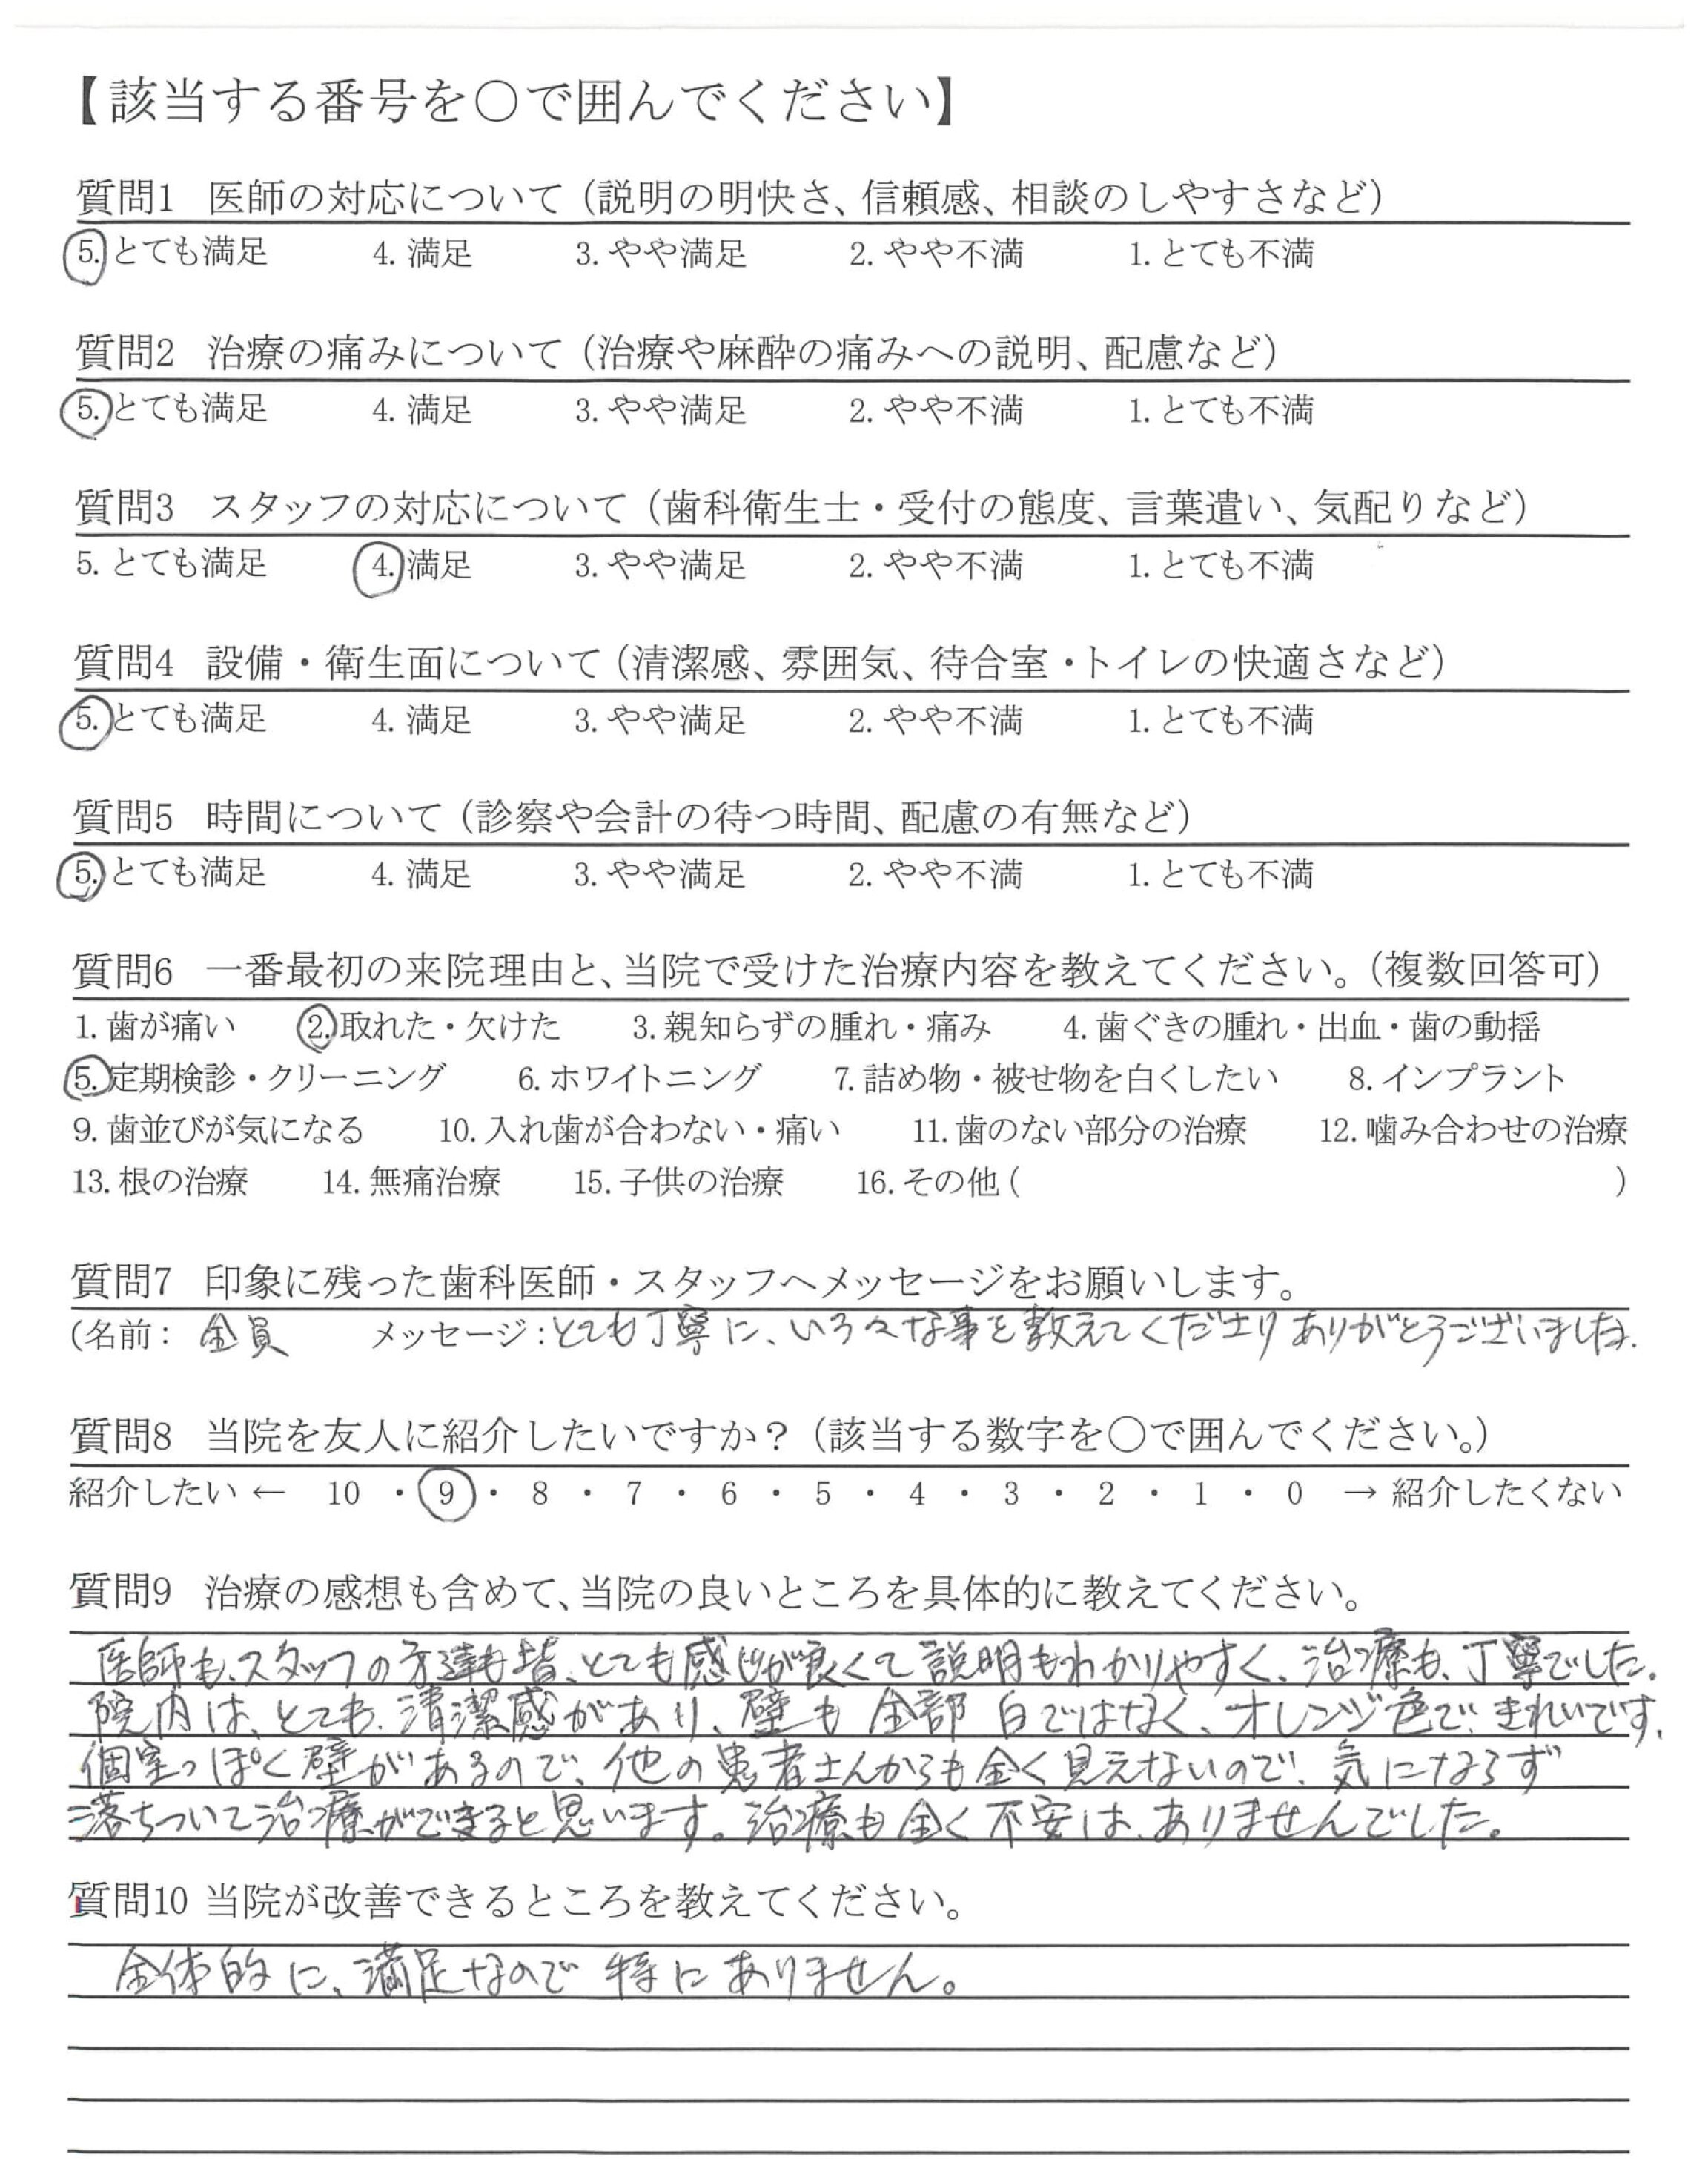 【該当する番号を〇で囲んでください】
質問1 医師の対応について（説明の明快さ、信頼感、相談のしやすさなど）
5. とても満足 4. 満足 3. やや満足 2. やや不満 1. とても不満
質問2 治療の痛みについて（治療や麻酔の痛みへの説明、配慮など）
5. とても満足 4. 満足 3. やや満足 2. やや不満 1. とても不満
質問3 スタッフの対応について（歯科衛生士・受付の態度、言葉遣い、気配りなど）
5. とても満足 4. 満足 3. やや満足 2. やや不満 1. とても不満
質問4 設備・衛生面について（清潔感、雰囲気、待合室・トイレの快適さなど）
5. とても満足 4. 満足 3. やや満足 2. やや不満 1. とても不満
質問5 時間について（診察や会計の待つ時間、配慮の有無など）
5. とても満足 4. 満足 3. やや満足 2. やや不満 1. とても不満
質問6 一番最初の来院理由と、当院で受けた治療内容を教えてください。（複数回答可）
1. 歯が痛い 2. 取れた・欠けた 3. 親知らずの腫れ・痛み 4. 歯ぐきの腫れ・出血・歯の動揺
5. 定期検診・クリーニング 6. ホワイトニング 7. 詰め物・被せ物を白くしたい 8. インプラント
9. 歯並びが気になる 10. 入れ歯が合わない・痛い 11. 歯のない部分の治療 12. 噛み合わせの治療
13. 根の治療 14. 無痛治療 15. 子供の治療 16. その他 ( )
質問7 印象に残った歯科医師・スタッフへメッセージをお願いします。
(名前： 全員 メッセージ：とても丁寧に、いろ々な事を教えてくださり ありがとうございました.
質問8 当院を友人に紹介したいですか？（該当する数字を〇で囲んでください。）
紹介したい ← 10 ・ 9 ・ 8 ・ 7 ・ 6 ・ 5 ・ 4 ・ 3 ・ 2 ・ 1 ・ 0 → 紹介したくない
質問9 治療の感想も含めて、当院の良いところを具体的に教えてください。
医師も、スタッフの方達も皆、とても感じが良くて説明もわかりやすく、治療も、丁寧でした.
院内は、とても、清潔感があり、壁も全部白ではなく、オレンジ色で、きれいです.
個室っぽく壁があるので、他の患者さんからも全く見えないので、気にならず
落ちついて治療ができると思います。治療も全く不安は、ありませんでした。
質問10 当院が改善できるところを教えてください。
全体的に、満足なので 特にありません。